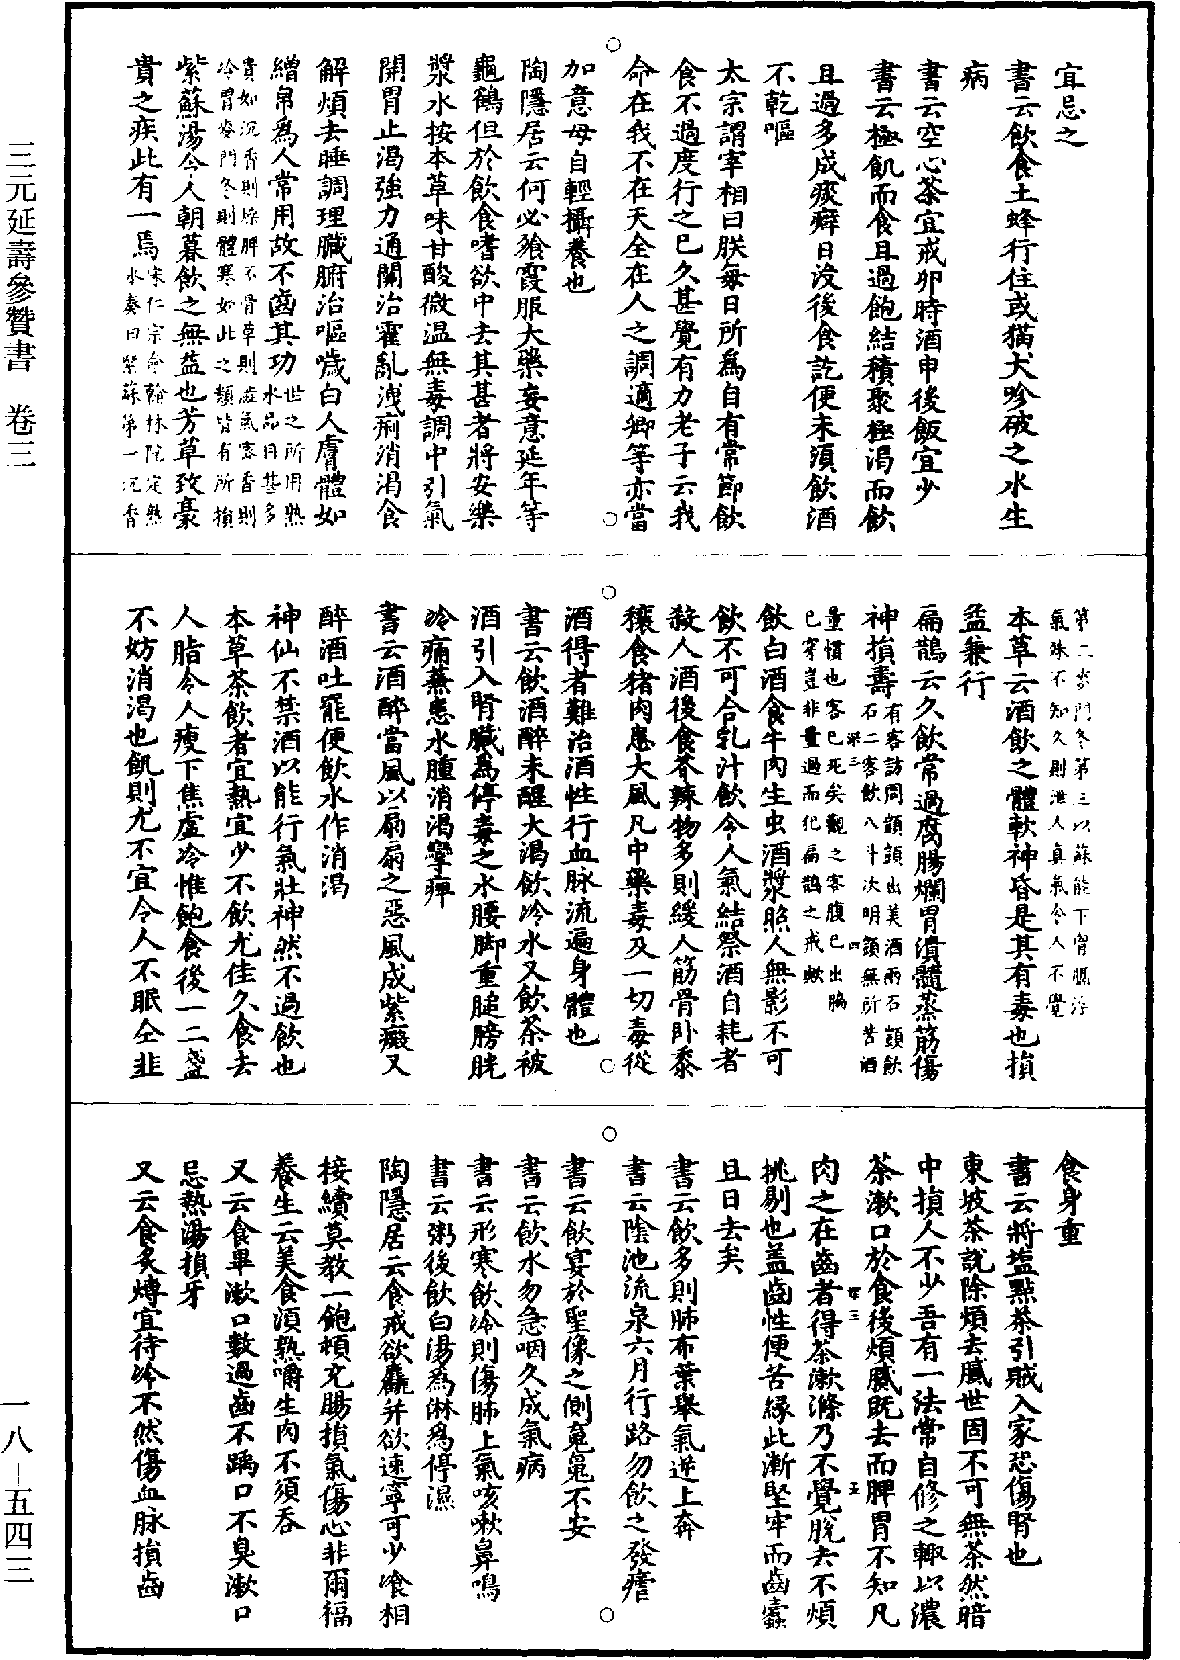 三元延壽參贊書　卷三
宜忌之
書云飲食土蜂行住或猫犬吵破之水生
病
書云空心茶宜戒卯時酒申後飯宜少
書云極飢而食且過飽結積聚極渴而飲
且過多成痰癖日没後食訖便未須飲酒
不乾嘔
太宗謂宰相曰朕每日所爲自有常節飲
食不過度行之已久甚覺有力老子云我
命在我不在天全在人之調適卿等亦當
加意毋自輕攝養也
陶隱居云何必飱霞服大藥妄意延年等
龜鶴但於飲食嗜欲中去其甚者將安樂
漿水按本草味甘酸微温無毒調中引氣
開胃止渴強力通關治霍亂洩痢消渴食
解煩去睡調理臟腑治嘔噦白人膚體如
繒帛爲人常用故不齒其功世之所用熟水品目甚多
貴如沉香則燥脾木骨草則澁氣蜜香則
冷胃麥門冬則體寒如此之類皆有所損
紫蘇湯今人朝暮飲之無益也芳草致豪
貴之疾此有一焉宋仁宗命翰林院定熟水奏曰紫蘇第一沉香
第二麥門冬第三以蘇能下胷膈浮
氣殊不知久則泄人真氣令人不覺
本草云酒飲之體軟神昏是其有毒也損
益兼行
扁鵲云久飲常過腐腸爛胃潰髓蒸筋傷
神損壽有客訪周顗顗出美酒兩石顗飲
石二客飲八斗次明顗無所苦酒
量慣也客已死矣觀之客腹已出脇
已穿豈非量過而犯扁鵲之戒歟
飲白酒食牛肉生虫酒漿照人無影不可
飲不可合乳汁飲令人氣結祭酒自耗者
殺人酒後食芥辣物多則緩人筋骨卧黍
穰食猪肉患大風凡中藥毒及一切毒從
酒得者難治酒性行血脉流遍身體也
書云飲酒醉未醒大渴飲冷水又飲茶被
酒引入腎臟爲停毒之水腰脚重膇膀胱
冷痛蕪患水腫消渴攣痺
書云酒醉當風以扇扇之惡風成紫癜又
醉酒吐罷便飲水作消渴
神仙不禁酒以能行氣壯神然不過飲也
本草茶飲者宜熱宜少不飲尤佳久食去
人脂令人瘦下焦虛冷惟飽食後一二盞
不妨消渴也飢則尤不宜令人不眠仝韭
食身重
書云將塩點茶引賊入家恐傷腎也
東坡茶說除煩去膩世固不可無茶然暗
中損人不少吾有一法常自修之輒以濃
茶漱口於食後煩膩既去而脾胃不知凡
肉之在齒者得茶漱滌乃不覺脫去不煩
挑剔也蓋齒性便苦緣此漸堅牢而齒蠹
且日去矣
書云飲多則肺布葉舉氣逆上奔
書云陰池流泉六月行路勿飲之發瘧
書云飲宴於聖像之側魂魄不安
書云飲水勿急咽久成氣病
書云形寒飲冷則傷肺上氣咳嗽鼻鳴
書云粥後飲白湯爲淋爲停濕
陶隱居云食戒欲麤并欲速寧可少飡相
接續莫教一飽頓充腸損氣傷心非爾福
養生云美食須熟嚼生肉不須吞
又云食畢漱口數過齒不齲口不臭漱口
忌熱湯損牙
又云食炙煿宜待冷不然傷血脉損齒
一八—五四三